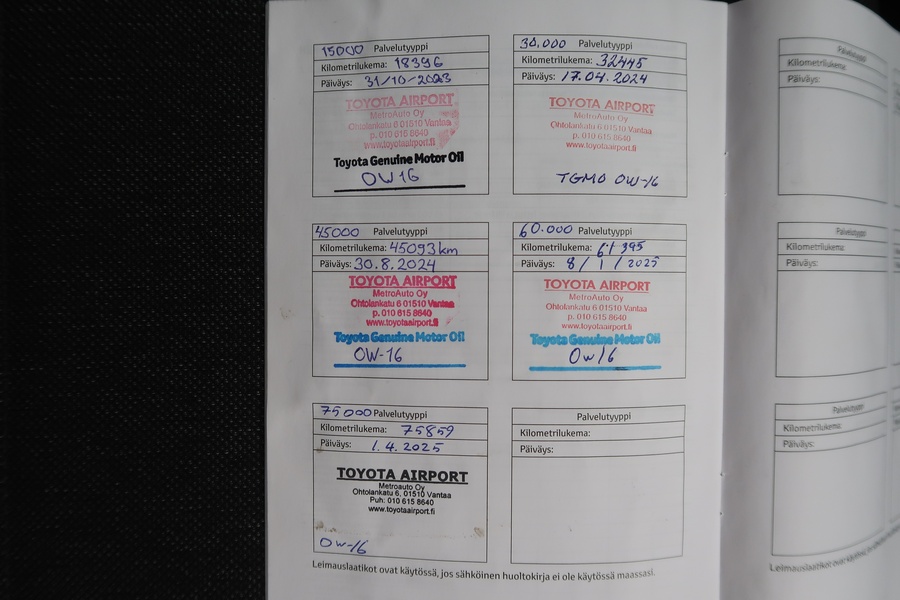 15000 Palvelutyyppi
Kilometrilukema: 18396
Päiväys: 31/10/2023
TOYOTA AIRPORT
MetroAuto Oy
Ohtolankatu 6 01510 Vantaa
p. 010 615 8640
www.toyotaairport.fi
Toyota Genuine Motor Oil
OW16
30.000 Palvelutyyppi
Kilometrilukema: 32445
Päiväys: 17.04.2024
TOYOTA AIRPORT
MetroAuto Oy
Ohtolankatu 6 01510 Vantaa
p. 010 615 8640
www.toyotaairport.fi
TGMO OW-16
45000 Palvelutyyppi
Kilometrilukema: 45093km
Päiväys: 30.8.2024
TOYOTA AIRPORT
MetroAuto Oy
Ohtolankatu 6 01510 Vantaa
p. 010 615 8640
www.toyotaairport.fi
Toyota Genuine Motor Oil
OW-16
60.000 Palvelutyyppi
Kilometrilukema: 61395
Päiväys: 8/1/2025
TOYOTA AIRPORT
MetroAuto Oy
Ohtolankatu 6 01510 Vantaa
p. 010 615 8640
www.toyotaairport.fi
Toyota Genuine Motor Oil
OW16
75000 Palvelutyyppi
Kilometrilukema: 75859
Päiväys: 1.4.2025
TOYOTA AIRPORT
Metroauto Oy
Ohtolankatu 6, 01510 Vantaa
Puh: 010 615 8640
www.toyotaairport.fi
OW-16
Palvelutyyppi
Kilometrilukema:
Päiväys:
Leimauslaatikot ovat käytössä, jos sähköinen huoltokirja ei ole käytössä maassasi.
Palvelutyyppi
Kilometrilukema:
Päiväys:
Palvelutyyppi
Kilometrilukema:
Päiväys:
Palvelutyyppi
Kilometrilukema:
Päiväys:
Leimauslaatikot ovat